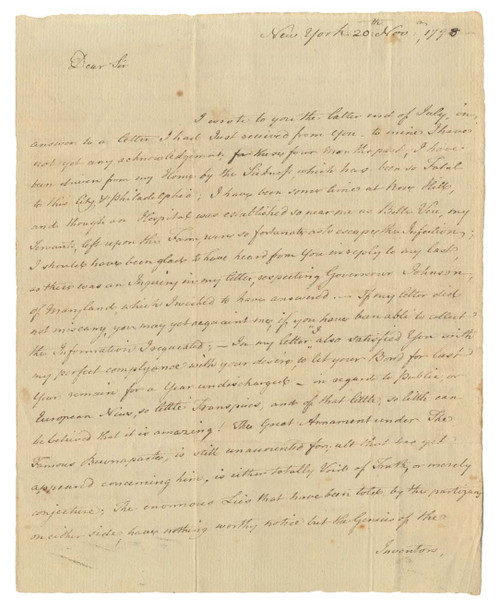 New York 20th Nov. 1798
Dear Sir
I wrote to you the latter end of July, in
answer to a letter I had Just received from you, to mine I have
not yet any acknowledgment, for these four Months past, I have
been driven from my Home by the Sickness which has been so Fatal
to this City, & Philadelphia; I have been some times at Rose Hill,
and though an Hospital was established so near me as Belle Vue, my
Servants, left upon the Farm, were so fortunate as to escape the Infection;
I should have been glad to have heard from You in reply to my last,
as there was an Inquiry in my letter, respecting Governour Johnson,
of Maryland, which I wished to have answered — If my letter did
not miscarry, you may yet acquaint me, if you have been able to collect
the Information I requested; — In my letter I also satisfied You with
my perfect compliance with your desire, to let your Bond for last
Year remain for a Year undischarged — in regard to Publick or
European News, so little Transpires, and of that little, so little can
be believed that it is amazing! The Great Armament under The
Famous Buonaparte, is still unaccounted for, all that has yet
appeard concerning him, is either totally Void of Truth, or merely
conjecture; The enormous Lies that have been told by the partizans
on either side, have nothing worthy notice but the Genius of the
Inventors,